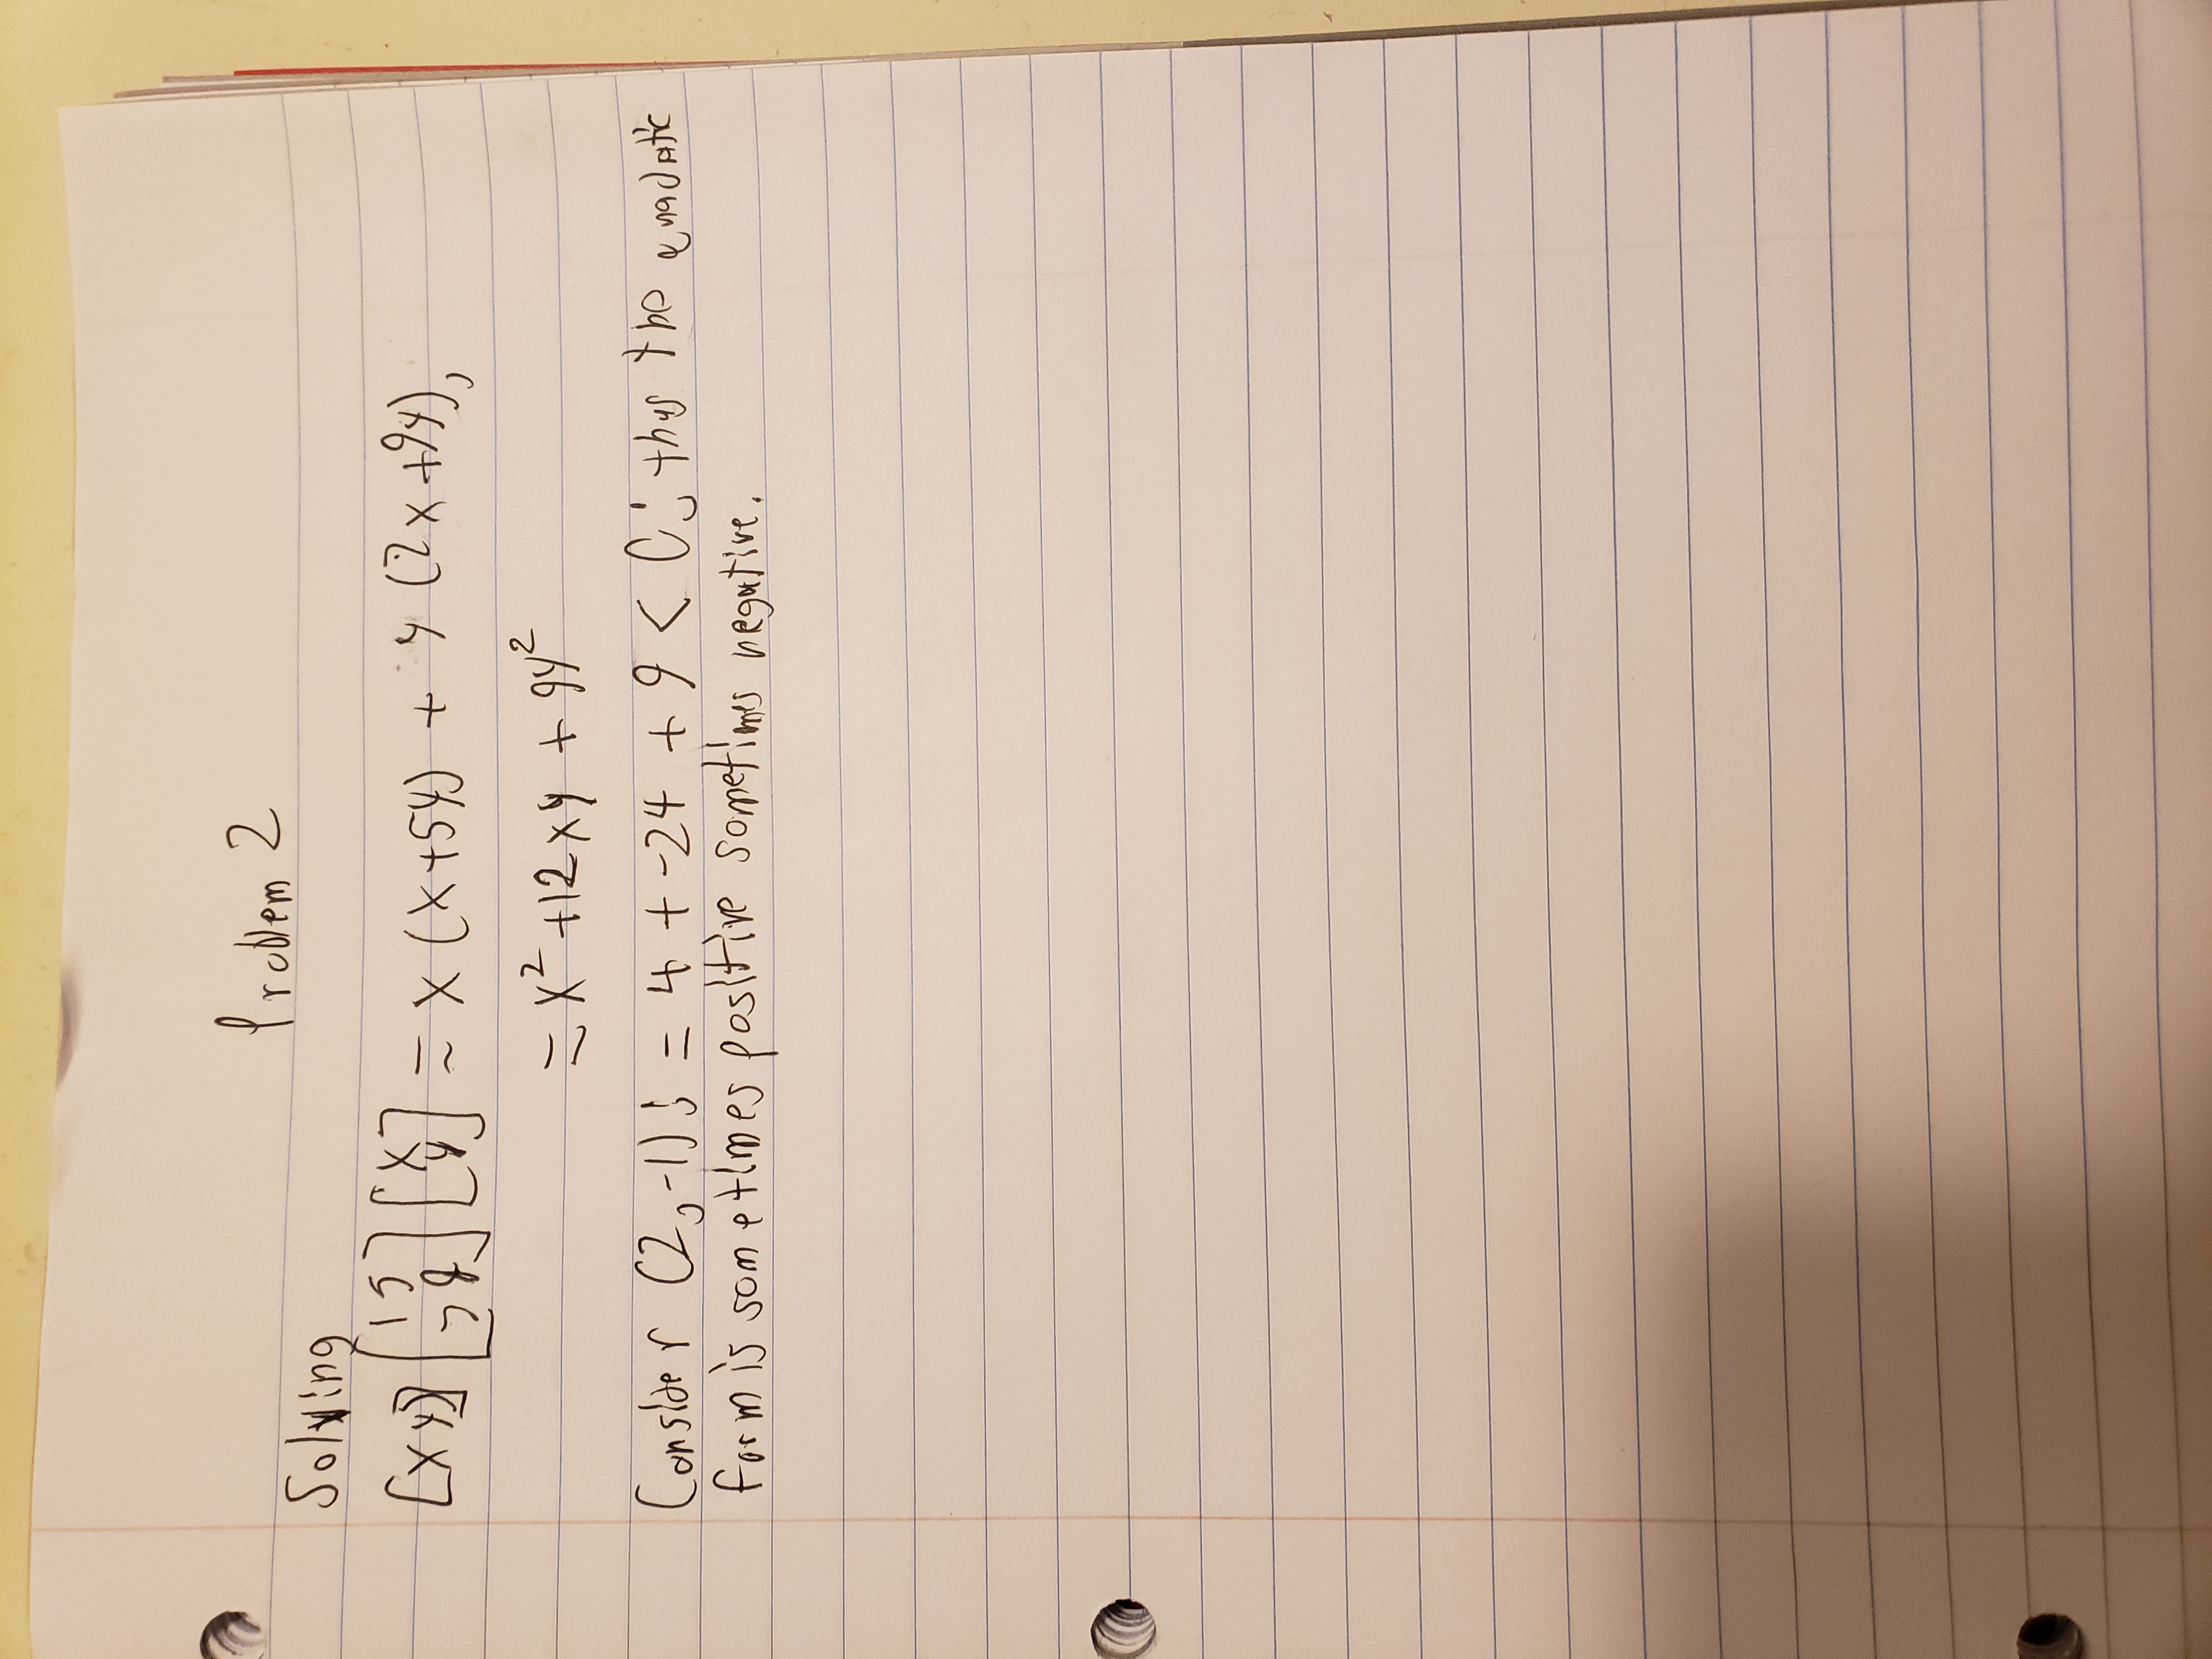 Problem 2
Solving
[x y] [1 5 7 9] [x y] = x (x+5y) + y (2x+9y),
= x² +12xy + 9y²
Consider (2,-1); = 4 + -24 + 9 < 0; thus the quadratic
form is sometimes positive sometimes negative.